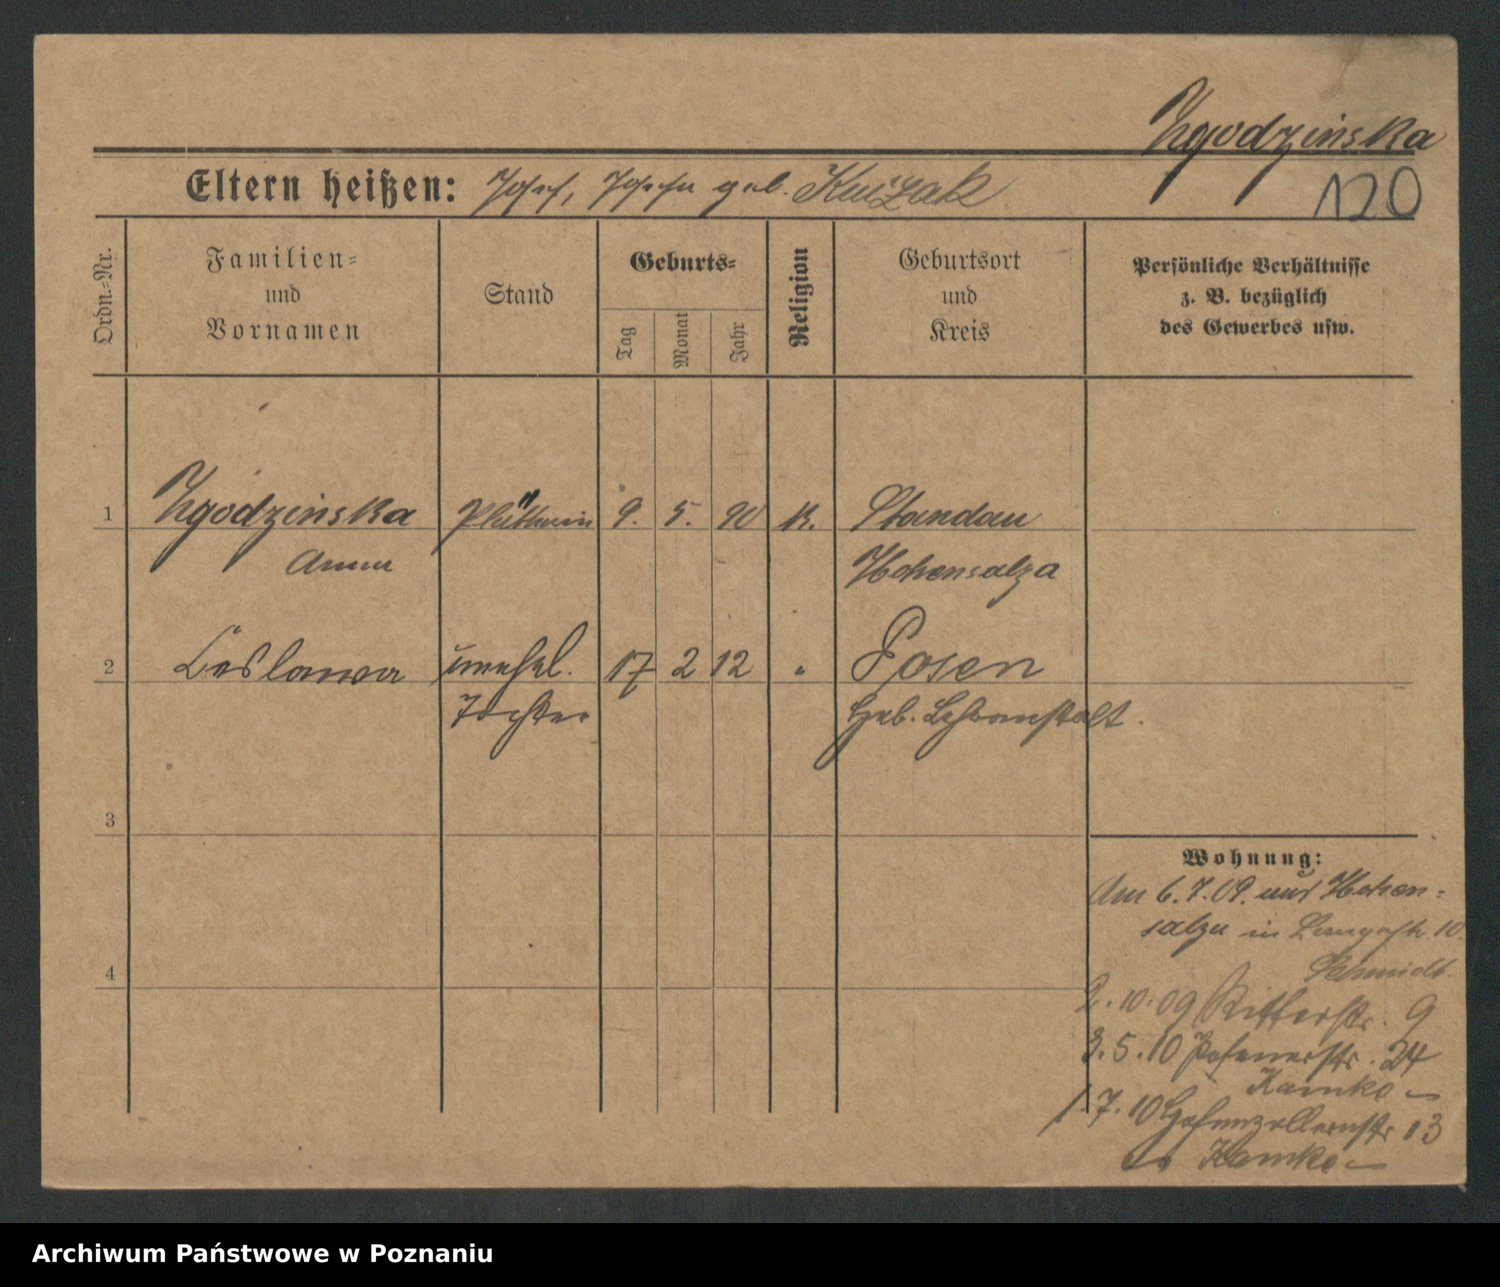 Zgodzinska
Eltern heißen: Josef, Josefa geb. Kuizak
120
Ordn.-Nr.
Familien-
und
Vornamen
Stand
Geburts-
Tag
Monat
Jahr
Religion
Geburtsort
und
Kreis
Persönliche Verhältnisse
z. B. bezüglich
des Gewerbes usw.
1 Zgodzinska 9. 5. 90 K. Standau
Anna Hohensalza
2 Ceslawa unehel. 17 2 12 " Posen
Tochter Heb. Lehranstalt.
3
4
Wohnung:
Am 6.7.09. aus Hohen-
salza in Langestr. 10.
Schmidt.
2.10.09 Ritterstr. 9
3.5.10 Posenerstr. 24
Kamke
1.7.10 Hohenzollernstr 13
Kamke
Archiwum Państwowe w Poznaniu